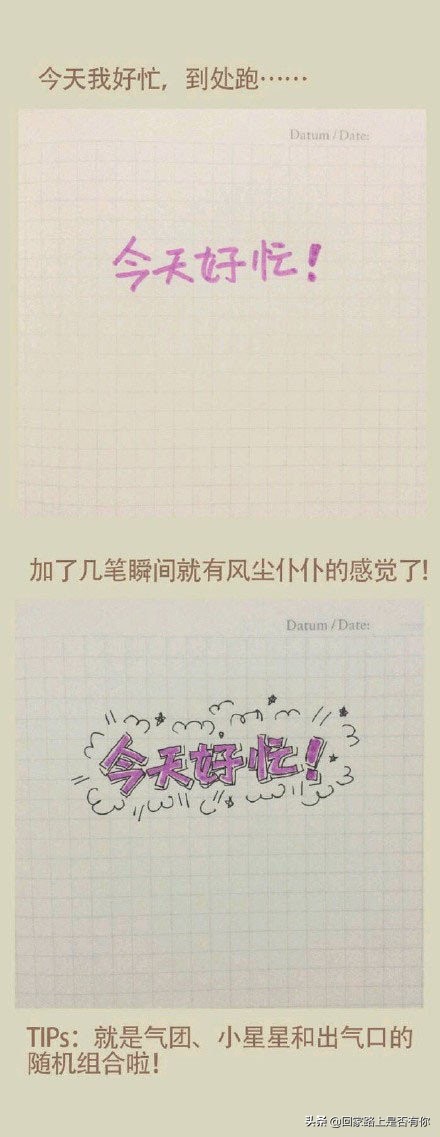 今天我好忙，到处跑……
Datum / Date:
今天好忙!
加了几笔瞬间就有风尘仆仆的感觉了!
Datum / Date:
今天好忙!
TIPs：就是气团、小星星和出气口的
随机组合啦!
头条 @回家路上是否有你